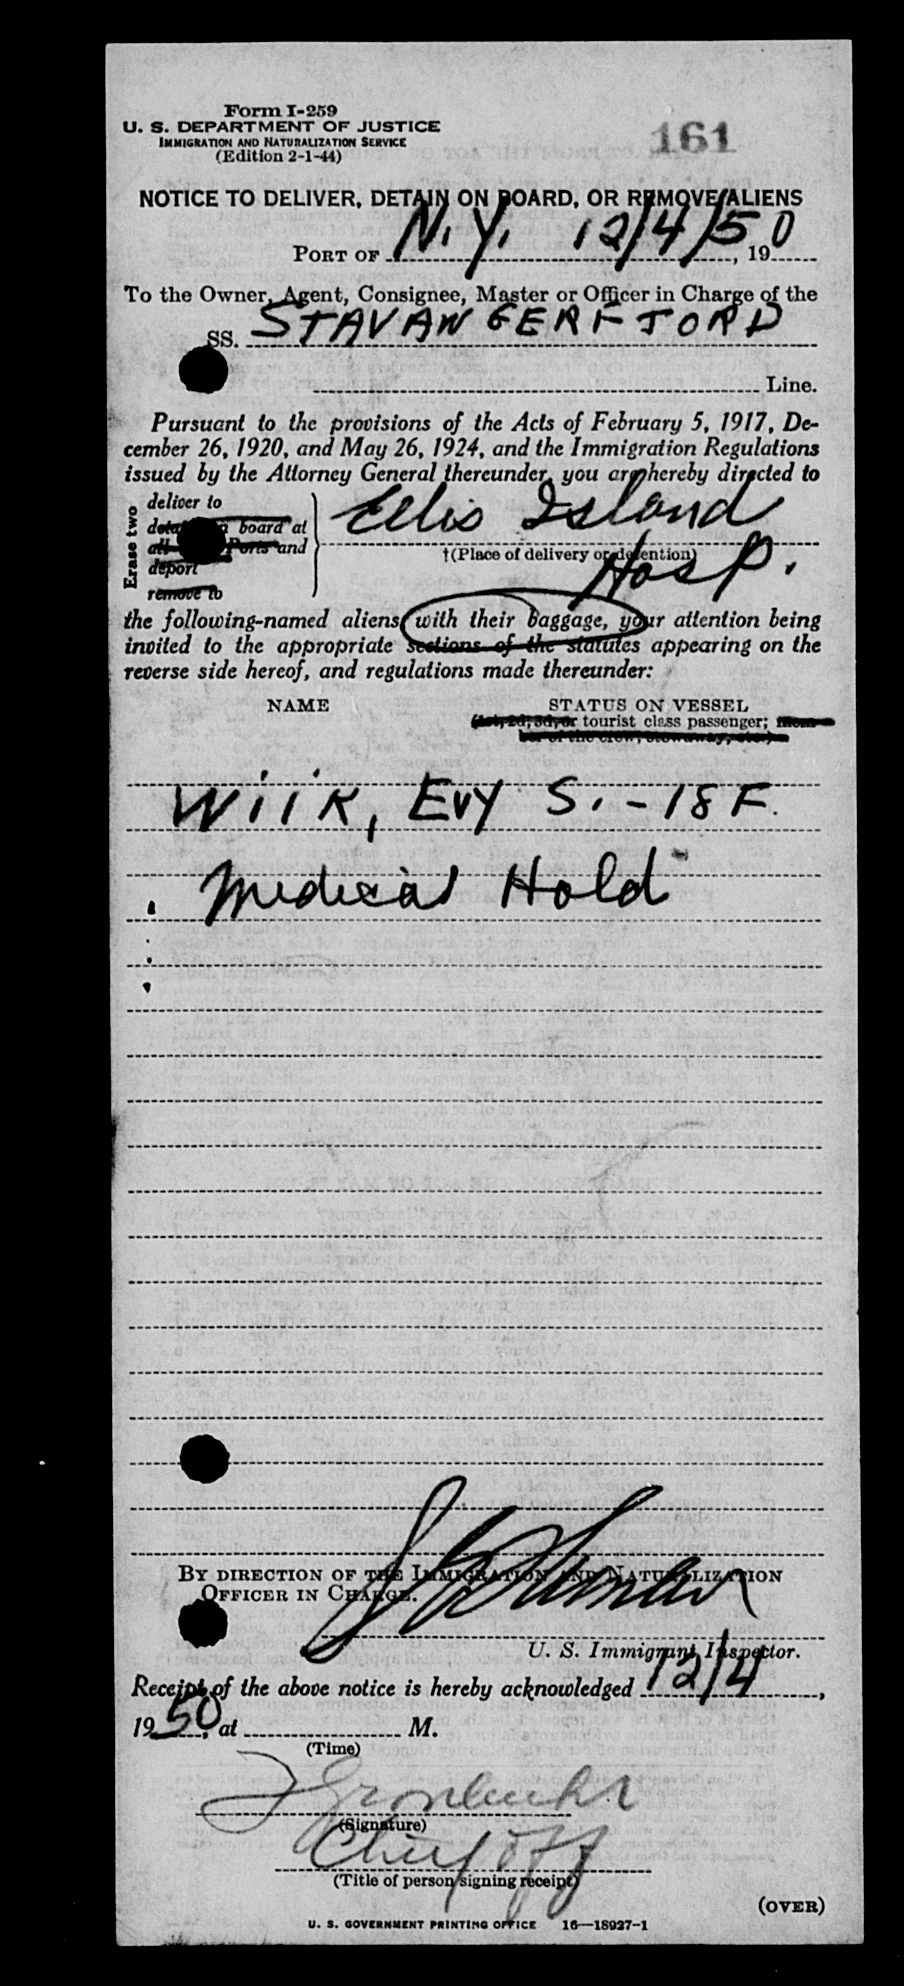 Form I-259
U. S. DEPARTMENT OF JUSTICE
IMMIGRATION AND NATURALIZATION SERVICE
(Edition 2-1-44)
161
NOTICE TO DELIVER, DETAIN ON BOARD, OR REMOVE ALIENS
PORT OF N.Y. 12/4/50, 19 0
To the Owner, Agent, Consignee, Master or Officer in Charge of the
SS. STAVANGERFJORD
Line.
Pursuant to the provisions of the Acts of February 5, 1917, De-
cember 26, 1920, and May 26, 1924, and the Immigration Regulations
issued by the Attorney General thereunder, you are hereby directed to
Erase two
deliver to
board at
all Ports and
deport
remove to
Ellis Island
†(Place of delivery or detention)
Hosp.
the following-named aliens, with their baggage, your attention being
invited to the appropriate sections of the statutes appearing on the
reverse side hereof, and regulations made thereunder:
NAME STATUS ON VESSEL
(1st, 2d, 3d, or tourist class passenger; mem-
ber of the crew, stowaway, etc.)
Wiik, Evy S. - 18 F.
Medical Hold
BY DIRECTION OF THE IMMIGRATION AND NATURALIZATION
OFFICER IN CHARGE.
U. S. Immigrant Inspector.
Receipt of the above notice is hereby acknowledged 12/4,
1950, at M.
(Time)
(Signature)
Chief Off
(Title of person signing receipt)
(OVER)
U. S. GOVERNMENT PRINTING OFFICE 16—18927-1